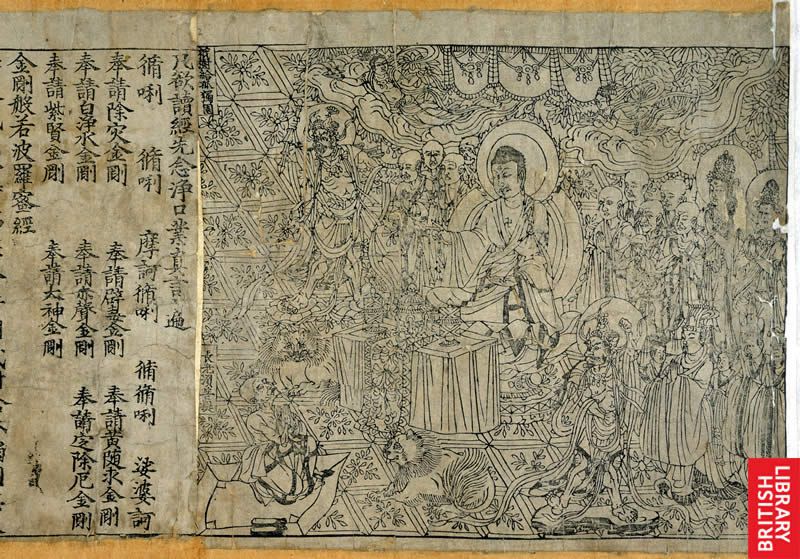 祇樹給孤獨園
長老須
凡欲讀經先念淨口業真言一遍
脩唎 脩唎 摩訶脩唎 脩脩唎 娑婆訶
奉請除灾金剛 奉請辟毒金剛 奉請黃随求金剛
奉請白淨水金剛 奉請赤聲金剛 奉請定除厄金剛
奉請紫賢金剛 奉請大神金剛
金剛般若波羅蜜經
BRITISH
LIBRARY